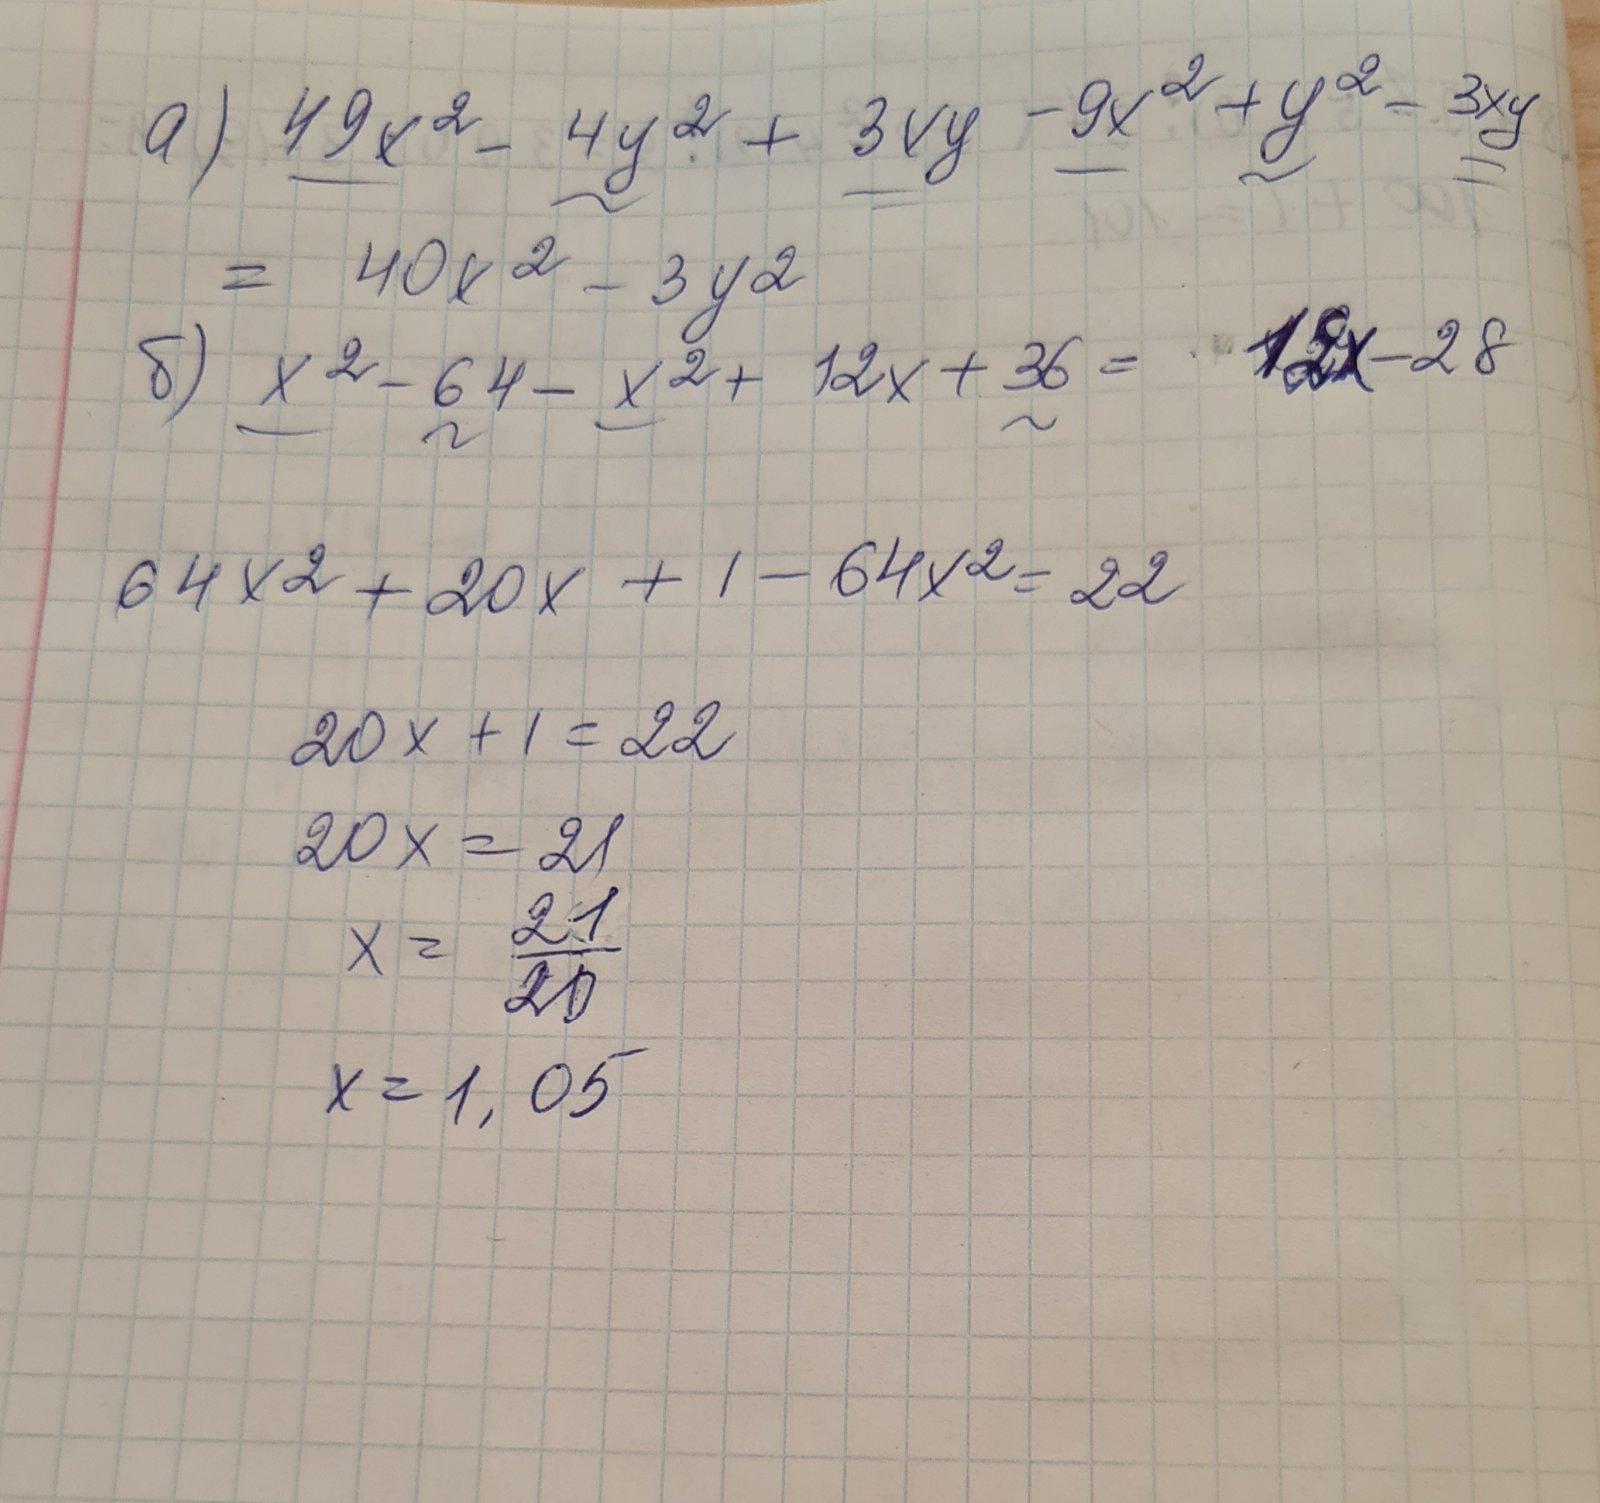 а) 49x² - 4y² + 3xy - 9x² + y² - 3xy
= 40x² - 3y2
б) x² - 64 - x² + 12x + 36 = 12x - 28
64x² + 20x + 1 - 64x² = 22
20x + 1 = 22
20x = 21
x = 21/20
x = 1,05